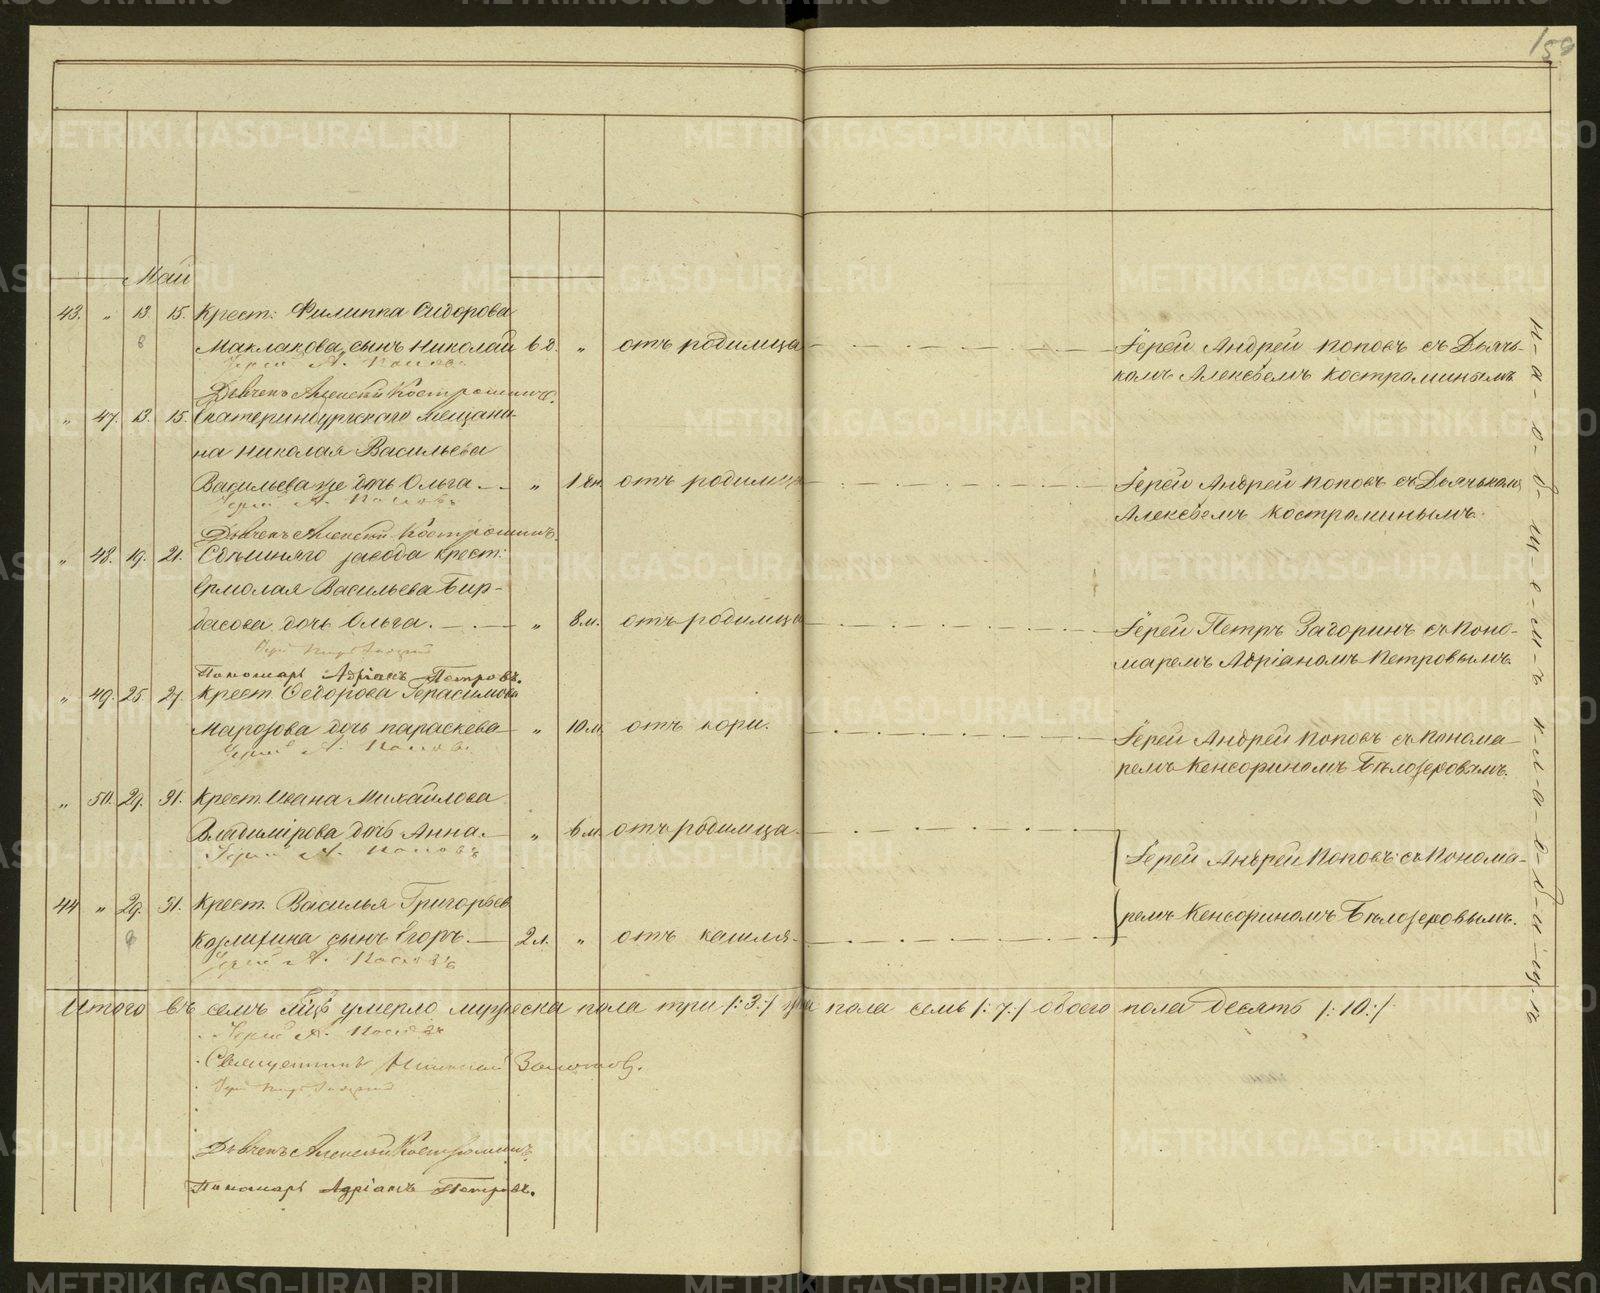 150
Май
43. " 13. 15. Крест: Филиппа Сидорова
Маклакова, сынъ Николай 6 д. " отъ родимца Іерей Андрей Поповъ съ Дьячь-
Іерей А. Поповъ. комъ Алексѣемъ Костроминымъ
Дьячекъ Алексей Костроминъ.
" 47. 13. 15. Екатеринбургскаго мещани-
на Николая Васильева
Васильева же дочь Ольга " 1 дн отъ родимца Іерей Андрей Поповъ съ Дьячькомъ
Іерей А. Поповъ Алексѣемъ Костроминымъ.
Дьячекъ Алексей Костроминъ.
" 48. 19. 21. завода крест:
Ермолая Васильева Бир-
басова дочь Ольга. " 8 м. отъ родимца Іерей Петръ съ Поно-
Іерей Петръ
маремъ Адріаномъ Петровымъ.
Пономарь Адріанъ Петровъ.
" 49. 25. 27. Крест. Ѳедорова Герасимова
Марозова дочь Параскева " 10 м. отъ кори. Іерей Андрей Поповъ съ Понома-
Іерей А. Поповъ. ремъ Кенсориномъ Бѣлозеровымъ.
" 50. 29. 31. Крест. Ивана Михайлова
Владимірова дочь Анна. " 6 м. отъ родимца. Іерей Андрей Поповъ съ Понома-
Іерей А. Поповъ
44 " 29. 31. Крест. Василья Григорьев ремъ Кенсориномъ Бѣлозеровымъ.
сынъ Егоръ. 2 л. " отъ кашля.
Іерей А. Поповъ
Итого въ семъ м-цѣ умерло мужеска пола три /:3:/ жен пола семь /:7:/ обоего пола десять /:10:/
Іерей А. Поповъ
Священникъ Николай
Іерей Петръ
Дьячекъ Алексей Костроминъ
Пономарь Адріанъ Петровъ.
на общемъ кладбищѣ
METRIKI.GASO-URAL.RU